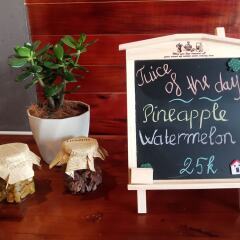 Juice
of the day
Pineapple
Watermelon
25k